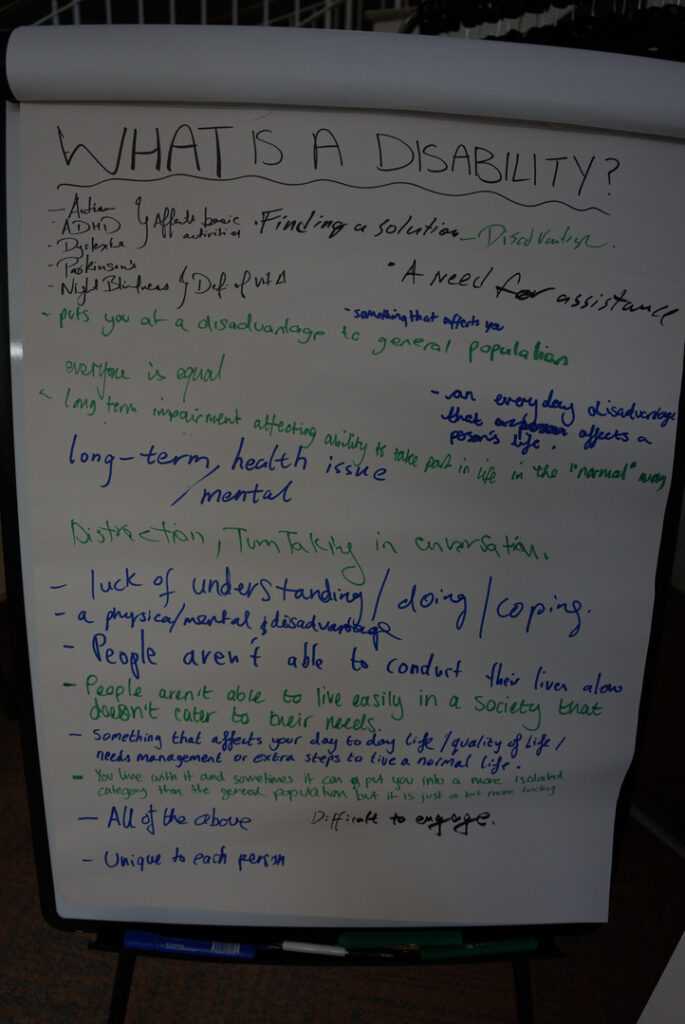 WHAT IS A DISABILITY?
- Autism
- ADHD
- Dyslexia
- Parkinson's
- Night Blindness } Def. of vit A
} Affects basic activities
• Finding a solution
- Disadvantage.
• A need for assistance
- something that affects you
- puts you at a disadvantage to general population
everyone is equal
- an everyday disadvantage
that affects a
person's life.
- long term impairment affecting ability to take part in life in the "normal" way
long-term health issue
/mental
Distraction, Turn Taking in conversation.
- luck of understanding/doing/coping.
- a physical/mental disadvantage
- People aren't able to conduct their lives alone
- People aren't able to live easily in a society that
doesn't cater to their needs.
- Something that affects your day to day life/quality of life/
needs management or extra steps to live a normal life.
- You live with it and sometimes it can put you into a more isolated
category than the general population but it is just a bit more tricky
- All of the above
Difficult to engage.
- Unique to each person